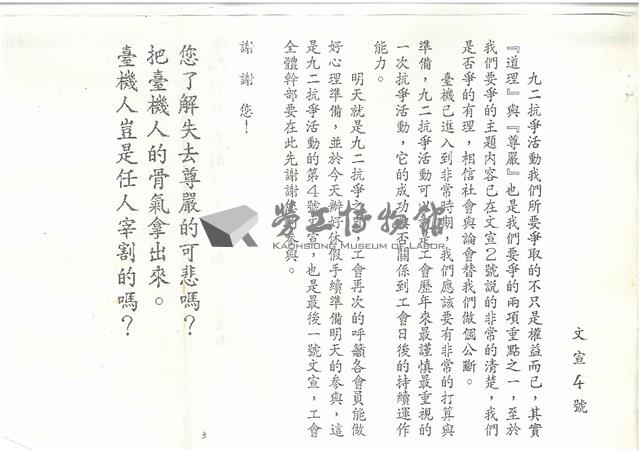 文宣4號
九二抗爭活動我們所要爭取的不只是權益而已，其實
『道理』與『尊嚴』也是我們要爭的兩項重點之一，至於
我們要爭的主題內容已在文宣2號說的非常的清楚，我們
是否爭的有理，相信社會與論會替我們做個公斷。
臺機已進入到非常時期，我們應該要有非常的打算與
準備，九二抗爭活動可說是工會歷年來最謹慎最重視的
一次抗爭活動，它的成功與否關係到工會日後的持續運作
能力。
明天就是九二抗爭之日，工會再次的呼籲各會員能做
好心理準備，並於今天辦好休假手續準備明天的參與，這
是九二抗爭活動的第4號文宣，也是最後一號文宣，工會
全體幹部要在此先謝謝您的參與。
謝謝您！
您了解失去尊嚴的可悲嗎？
把臺機人的骨氣拿出來。
臺機人豈是任人宰割的嗎？
3
勞工博物館
KAOHSIUNG MUSEUM OF LABOR